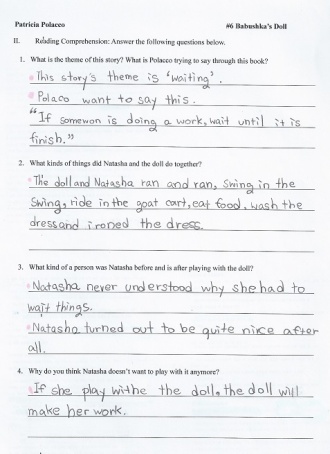 Patricia Polacco #6 Babushka's Doll
II. Reading Comprehension: Answer the following questions below.
1. What is the theme of this story? What is Polacco trying to say through this book?
This story's theme is 'waiting'.
Polaco want to say this.
"If somewon is doing a work, wait until it is
finish."
2. What kinds of things did Natasha and the doll do together?
The doll and Natasha ran and ran, swing in the
swing, ride in the goat cart, eat food, wash the
dress and ironed the dress.
3. What kind of a person was Natasha before and is after playing with the doll?
Natasha never understood why she had to
wait things.
Natasha turned out to be quite nice after
all.
4. Why do you think Natasha doesn't want to play with it anymore?
If she play withe the doll, the doll will
make her work.